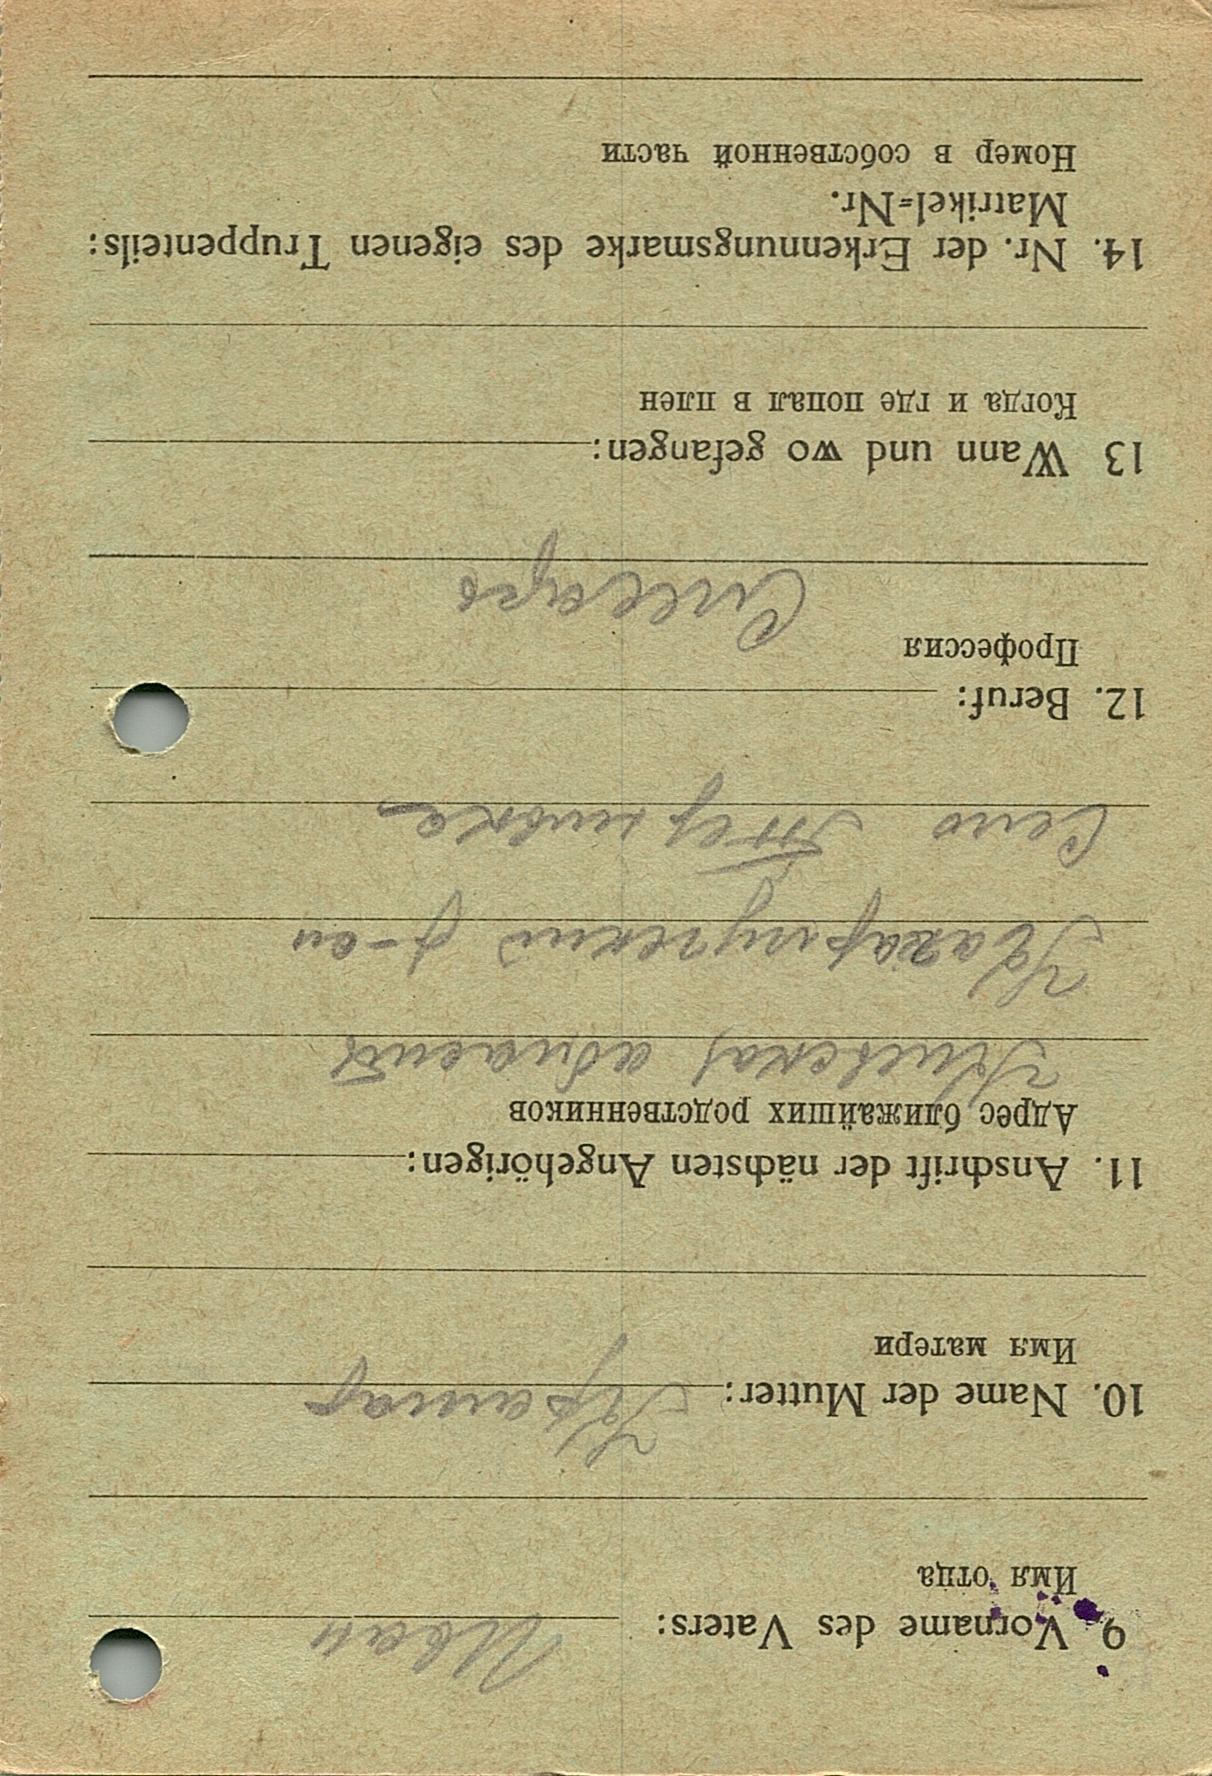 9 Vorname des Vaters: Иван
Имя отца
10. Name der Mutter:
Имя матери
11. Anschrift der nächsten Angehörigen:
Адрес ближайших родственников
Киевская
р-он
Село
12. Beruf:
Профессия
Слесарь
13 Wann und wo gefangen:
Когда и где попал в плен
14. Nr. der Erkennungsmarke des eigenen Truppenteils:
Matrikel=Nr.
Номер в собственной части